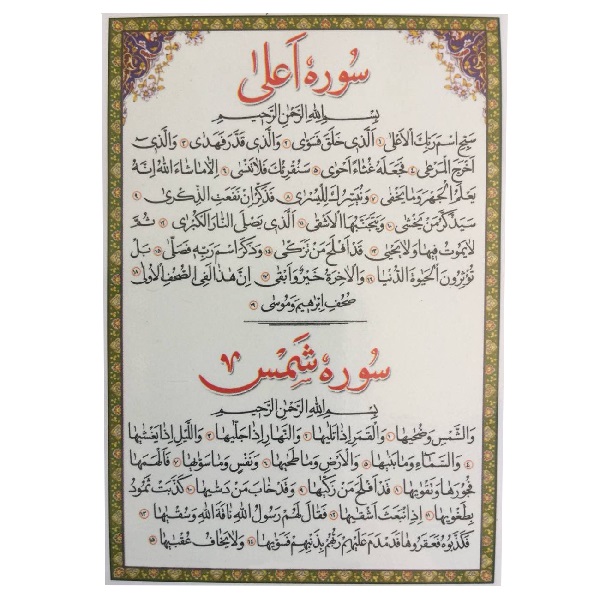 سوره اَعلیٰ
بِسْمِ اللهِ الرَّحْمٰنِ الرَّحیمِ
سَبِّحِ اسْمَ رَبِّكَ الْاَعْلَی ۱ اَلَّذی خَلَقَ فَسَوّٰی ۲ وَالَّذی قَدَّرَ فَهَدٰی ۳ وَالَّذی
اَخْرَجَ الْمَرْعٰی ۴ فَجَعَلَهُ غُثٰٓاءً اَحْوٰی ۵ سَنُقْرِئُكَ فَلا تَنْسٰی ۶ اِلّا مٰاشٰآءَ اللهُ اِنَّهُ
یَعْلَمُ الْجَهْرَ وَمٰا یَخْفٰی ۷ وَنُیَسِّرُكَ لِلْیُسْرٰی ۸ فَذَكِّرْ اِنْ نَفَعَتِ الذِّكْرٰی ۹
سَیَذَّكَّرُ مَنْ یَخْشٰی ۱۰ وَیَتَجَنَّبُهَا الْاَشْقَی ۱۱ اَلَّذی یَصْلَی النّٰارَ الْكُبْرٰی ۱۲ ثُمَّ
لٰا یَمُوتُ فیهٰا وَلٰا یَحْیٰی ۱۳ قَدْ اَفْلَحَ مَنْ تَزَكّٰی ۱۴ وَذَكَرَ اسْمَ رَبِّهِ فَصَلّٰی ۱۵ بَلْ
تُؤْثِرُونَ الْحَیٰوةَ الدُّنْیٰا ۱۶ وَالْاٰخِرَةُ خَیْرٌ وَاَبْقٰی ۱۷ اِنَّ هٰذٰا لَفِی الصُّحُفِ الْاُولٰی ۱۸
صُحُفِ اِبْرٰهیمَ وَمُوسٰی ۱۹
سوره شَمس ۷
بِسْمِ اللهِ الرَّحْمٰنِ الرَّحیمِ
وَالشَّمْسِ وَضُحٰیهٰا ۱ وَالْقَمَرِ اِذٰا تَلٰیهٰا ۲ وَالنَّهٰارِ اِذٰا جَلّٰیهٰا ۳ وَاللَّیْلِ اِذٰا یَغْشٰیهٰا
۴ وَالسَّمٰآءِ وَمٰا بَنٰیهٰا ۵ وَالْاَرْضِ وَمٰا طَحٰیهٰا ۶ وَنَفْسٍ وَمٰا سَوّٰیهٰا ۷ فَاَلْهَمَهٰا
فُجُورَهٰا وَتَقْوٰیهٰا ۸ قَدْ اَفْلَحَ مَنْ زَكّٰیهٰا ۹ وَقَدْ خٰابَ مَنْ دَسّٰیهٰا ۱۰ كَذَّبَتْ ثَمُودُ
بِطَغْوٰیهٰا ۱۱ اِذِ انْبَعَثَ اَشْقٰیهٰا ۱۲ فَقٰالَ لَهُمْ رَسُولُ اللهِ نٰاقَةَ اللهِ وَسُقْیٰهٰا ۱۳
فَكَذَّبُوهُ فَعَقَرُوهٰا فَدَمْدَمَ عَلَیْهِمْ رَبُّهُمْ بِذَنْبِهِمْ فَسَوّٰیهٰا ۱۴ وَلٰا یَخٰافُ عُقْبٰیهٰا ۱۵